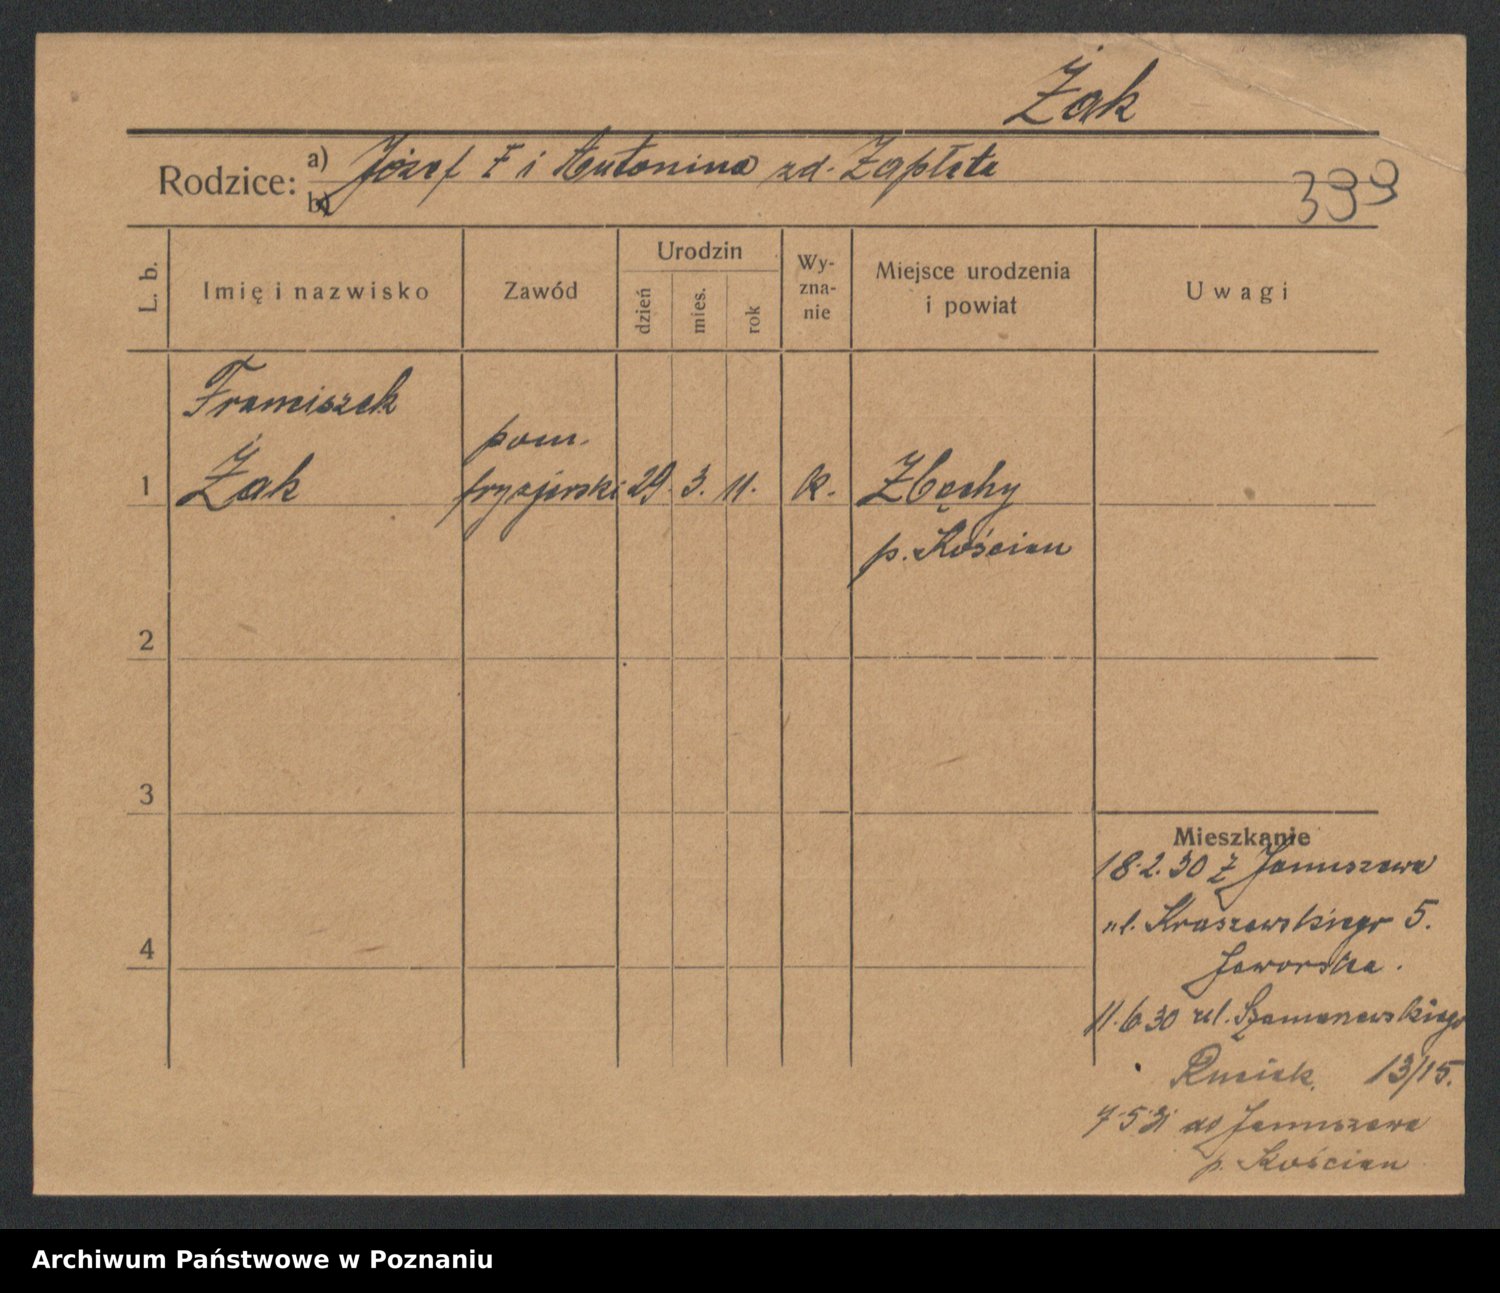 Żak
Rodzice: a) Józef Ż i Antonina zd. Zapłata
b)
399
L. b.
Imię i nazwisko
Zawód
Urodzin
dzień
mies.
rok
Wy-
zna-
nie
Miejsce urodzenia
i powiat
Uwagi
Franciszek
1 Żak
pom.
fryzjerski
29. 3. 11. k.
Zbęchy
p. Kościan
2
3
4
Mieszkanie
18.2.30 z Januszewa
ul. Kraszewskiego 5.
Jaworska.
11.6 30 ul. Szamarzewskiego
Rusiek. 13/15.
7.5.31 do Januszewa
p. Kościan
Archiwum Państwowe w Poznaniu